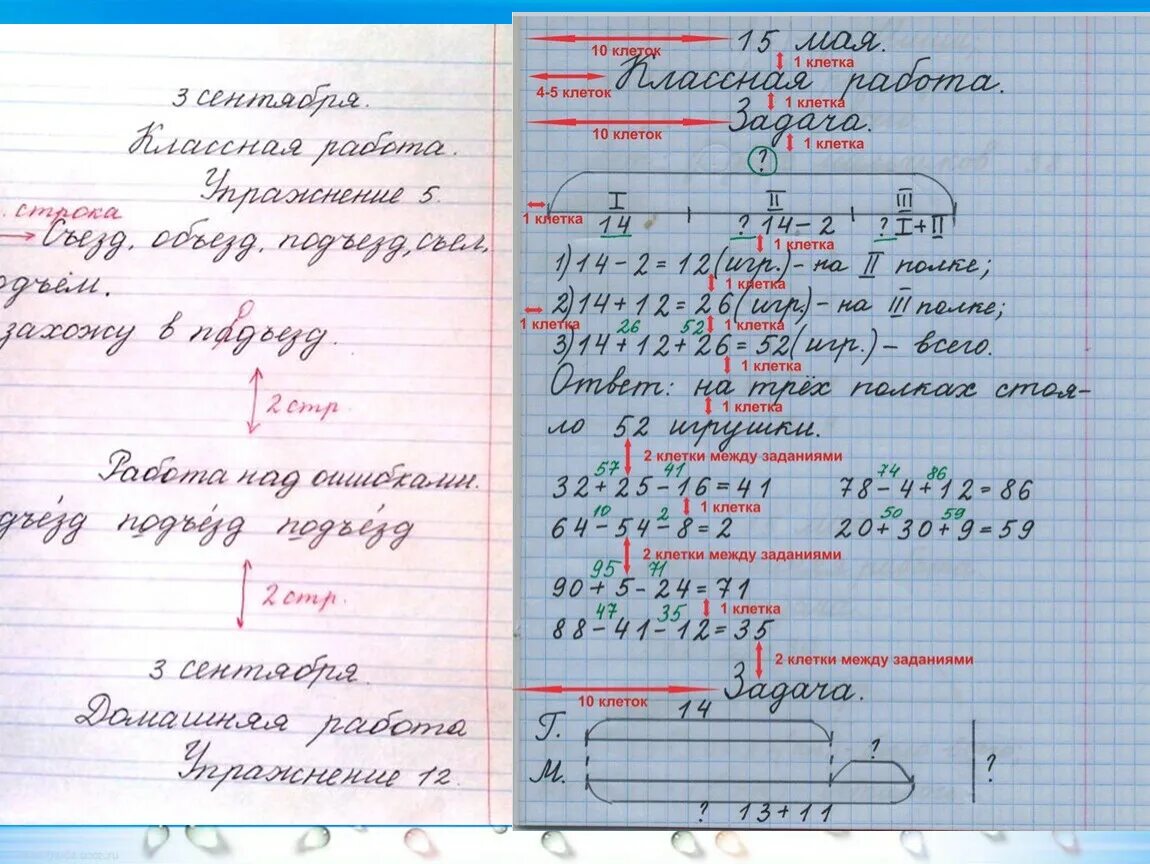 3 сентября.
Классная работа.
Упражнение 5.
. строка
Съезд, объезд, подъезд, съел,
одъём.
захожу в падъезд.
о
2 стр.
Работа над ошибками.
дъезд подъезд подъезд
2 стр.
3 сентября.
Домашняя работа
Упражнение 12.
10 клеток 15 мая.
1 клетка
4-5 клеток Классная работа.
1 клетка
10 клеток Задача.
1 клетка
?
I II III
1 клетка 14 ? 14-2 ? I+II
1 клетка
1) 14-2=12(игр.)- на II полке;
1 клетка
2) 14+12=26(игр.)- на III полке;
1 клетка 26 52 1 клетка
3) 14+12+26=52(игр.)- всего.
1 клетка
Ответ: на трёх полках стоя-
1 клетка
ло 52 игрушки.
2 клетки между заданиями
57 41 74 86
32+25-16=41 78-4+12=86
1 клетка
10 2 50 59
64-54-8=2 20+30+9=59
2 клетки между заданиями
95 71
90+5-24=71
47 35 1 клетка
88-41-12=35
2 клетки между заданиями
10 клеток Задача.
14
Г.
?
М. ?
? 13+11